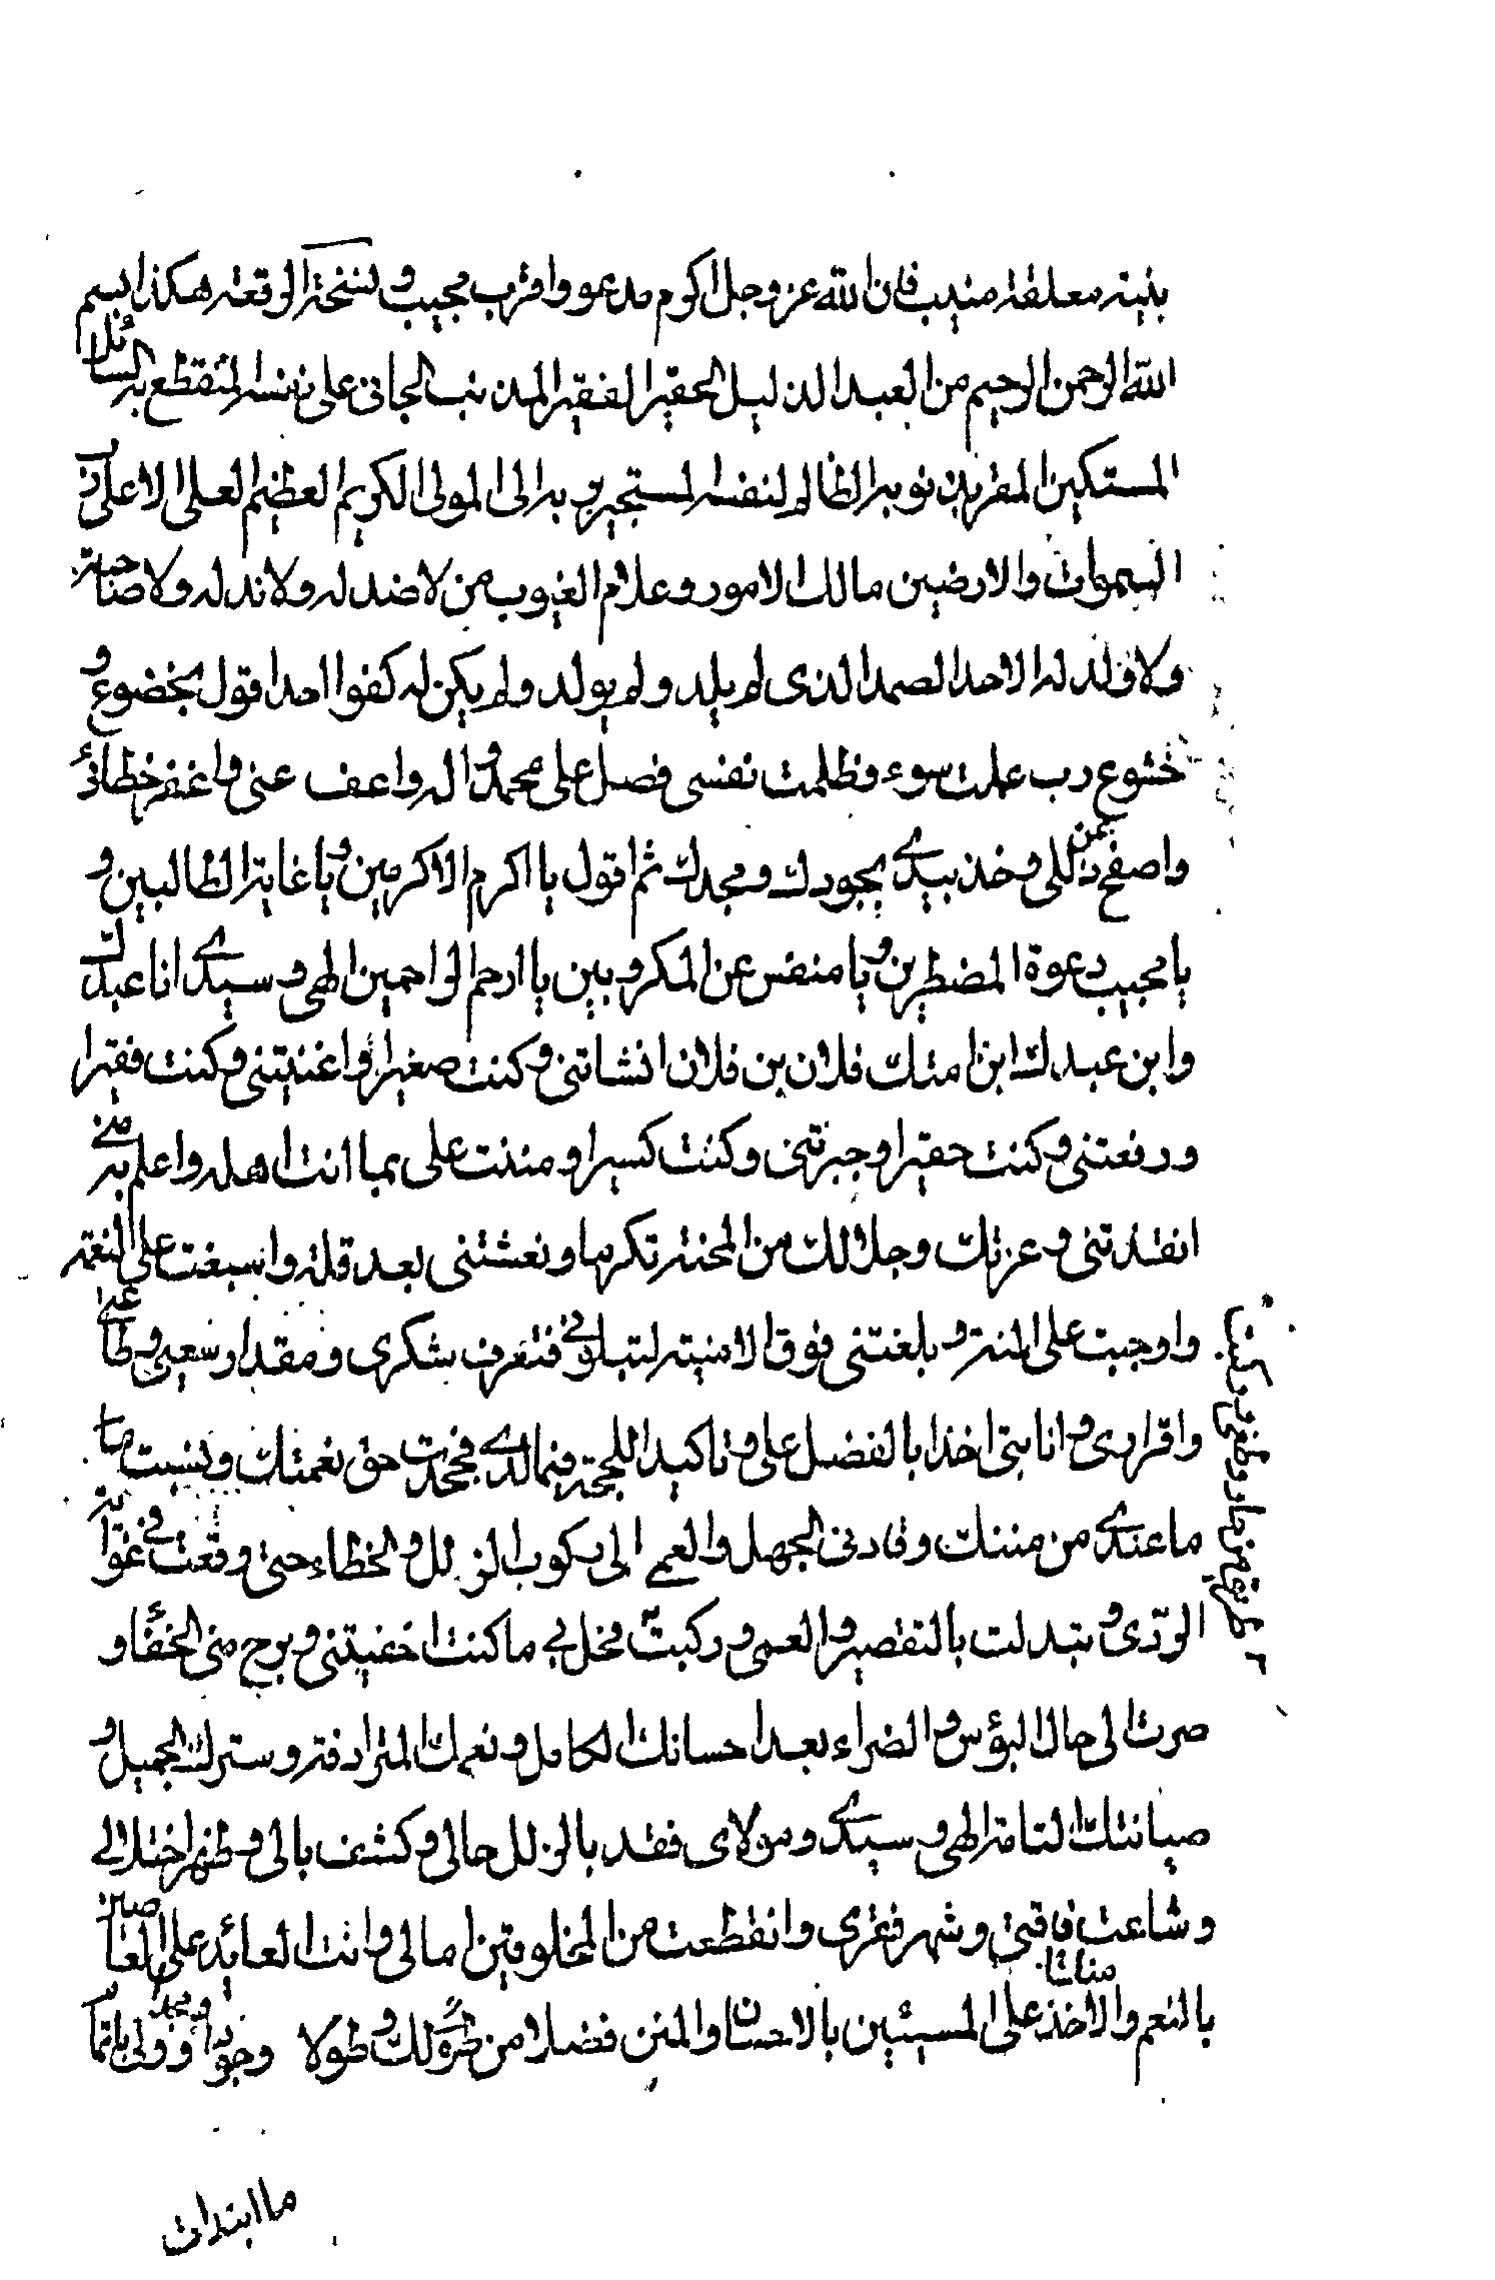 بنية معلقة منيب فان الله عز وجل اكرم مدعو واقرب مجيب ونسخة الرقعة هكذا بسم
الله الرحمن الرحيم من العبد الذليل الحقير الفقير المذنب الجاني على نفسه المنقطع به السائل
المستكين المقر بذنوبه الظالم لنفسه المستجير به الى المولى الكريم العظيم العلى الاعلى
السموات والارضين مالك الامور وعلام الغيوب من لا ضد له ولا ند له ولا صاحبة
ولا ولد له الاحد الصمد الذى لم يلد ولم يولد ولم يكن له كفوا احد اقول بخضوع و
خشوع رب عملت سوء وظلمت نفسى فصل على محمد واله واعف عنى واغفر خطائى
واصفح عن زللى وخذ بيدى بجودك ومجدك ثم اقول يا اكرم الاكرمين ويا غاية الطالبين و
يا مجيب دعوة المضطرين ويا منفس عن المكروبين يا ارحم الراحمين الهى وسيدى انا عبدك
وابن عبدك ابن امتك فلان بن فلان انشاتنى وكنت صغيرا واغنيتنى وكنت فقيرا
ورفعتنى وكنت حقيرا وجبرتنى وكنت كسيرا ومننت على بما انت اهله واعلم به منى
انقذتنى وعزتك وجلالك من المحنة تكرما ونعشتنى بعد قلة واسبغت على النعمة
واوجبت على المنة وبلغتنى فوق الامنية لتبلونى فتعرف شكرى ومقدار سعيى وطاعتى
واقرارى وانابتى اخذا بالفضل على وتاكيدا للحجة فيما لدى فجحدت حق نعمتك ونسيت
ما عندى من مننك وقادنى الجهل والعمى الى ركوب الزلل والخطاء حتى وقعت فى غواية
الردى وتبدلت بالتقصير والعمى وركبت ما كنت اخفيتنى وبرح منى الخفاء و
صرت الى حال البؤس والضراء بعد احسانك الكامل ونعمك المترادفة وسترك الجميل و
صيانتك التامة الهى وسيدى ومولاى فقد بالزلل حالى وكشف بالى وظهر اختلالى
وشاعت فاقتى وشهر فقرى وانقطعت من المخلوقين امالى وانت العائد على العاصين
بالنعم والاخذ على المسيئين بالاحسان والمنن فضلا منك وطولا وجودا ومجدا
ما ابتدات